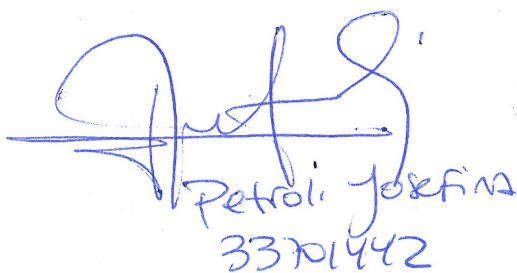 Petroli Josefina
33701442